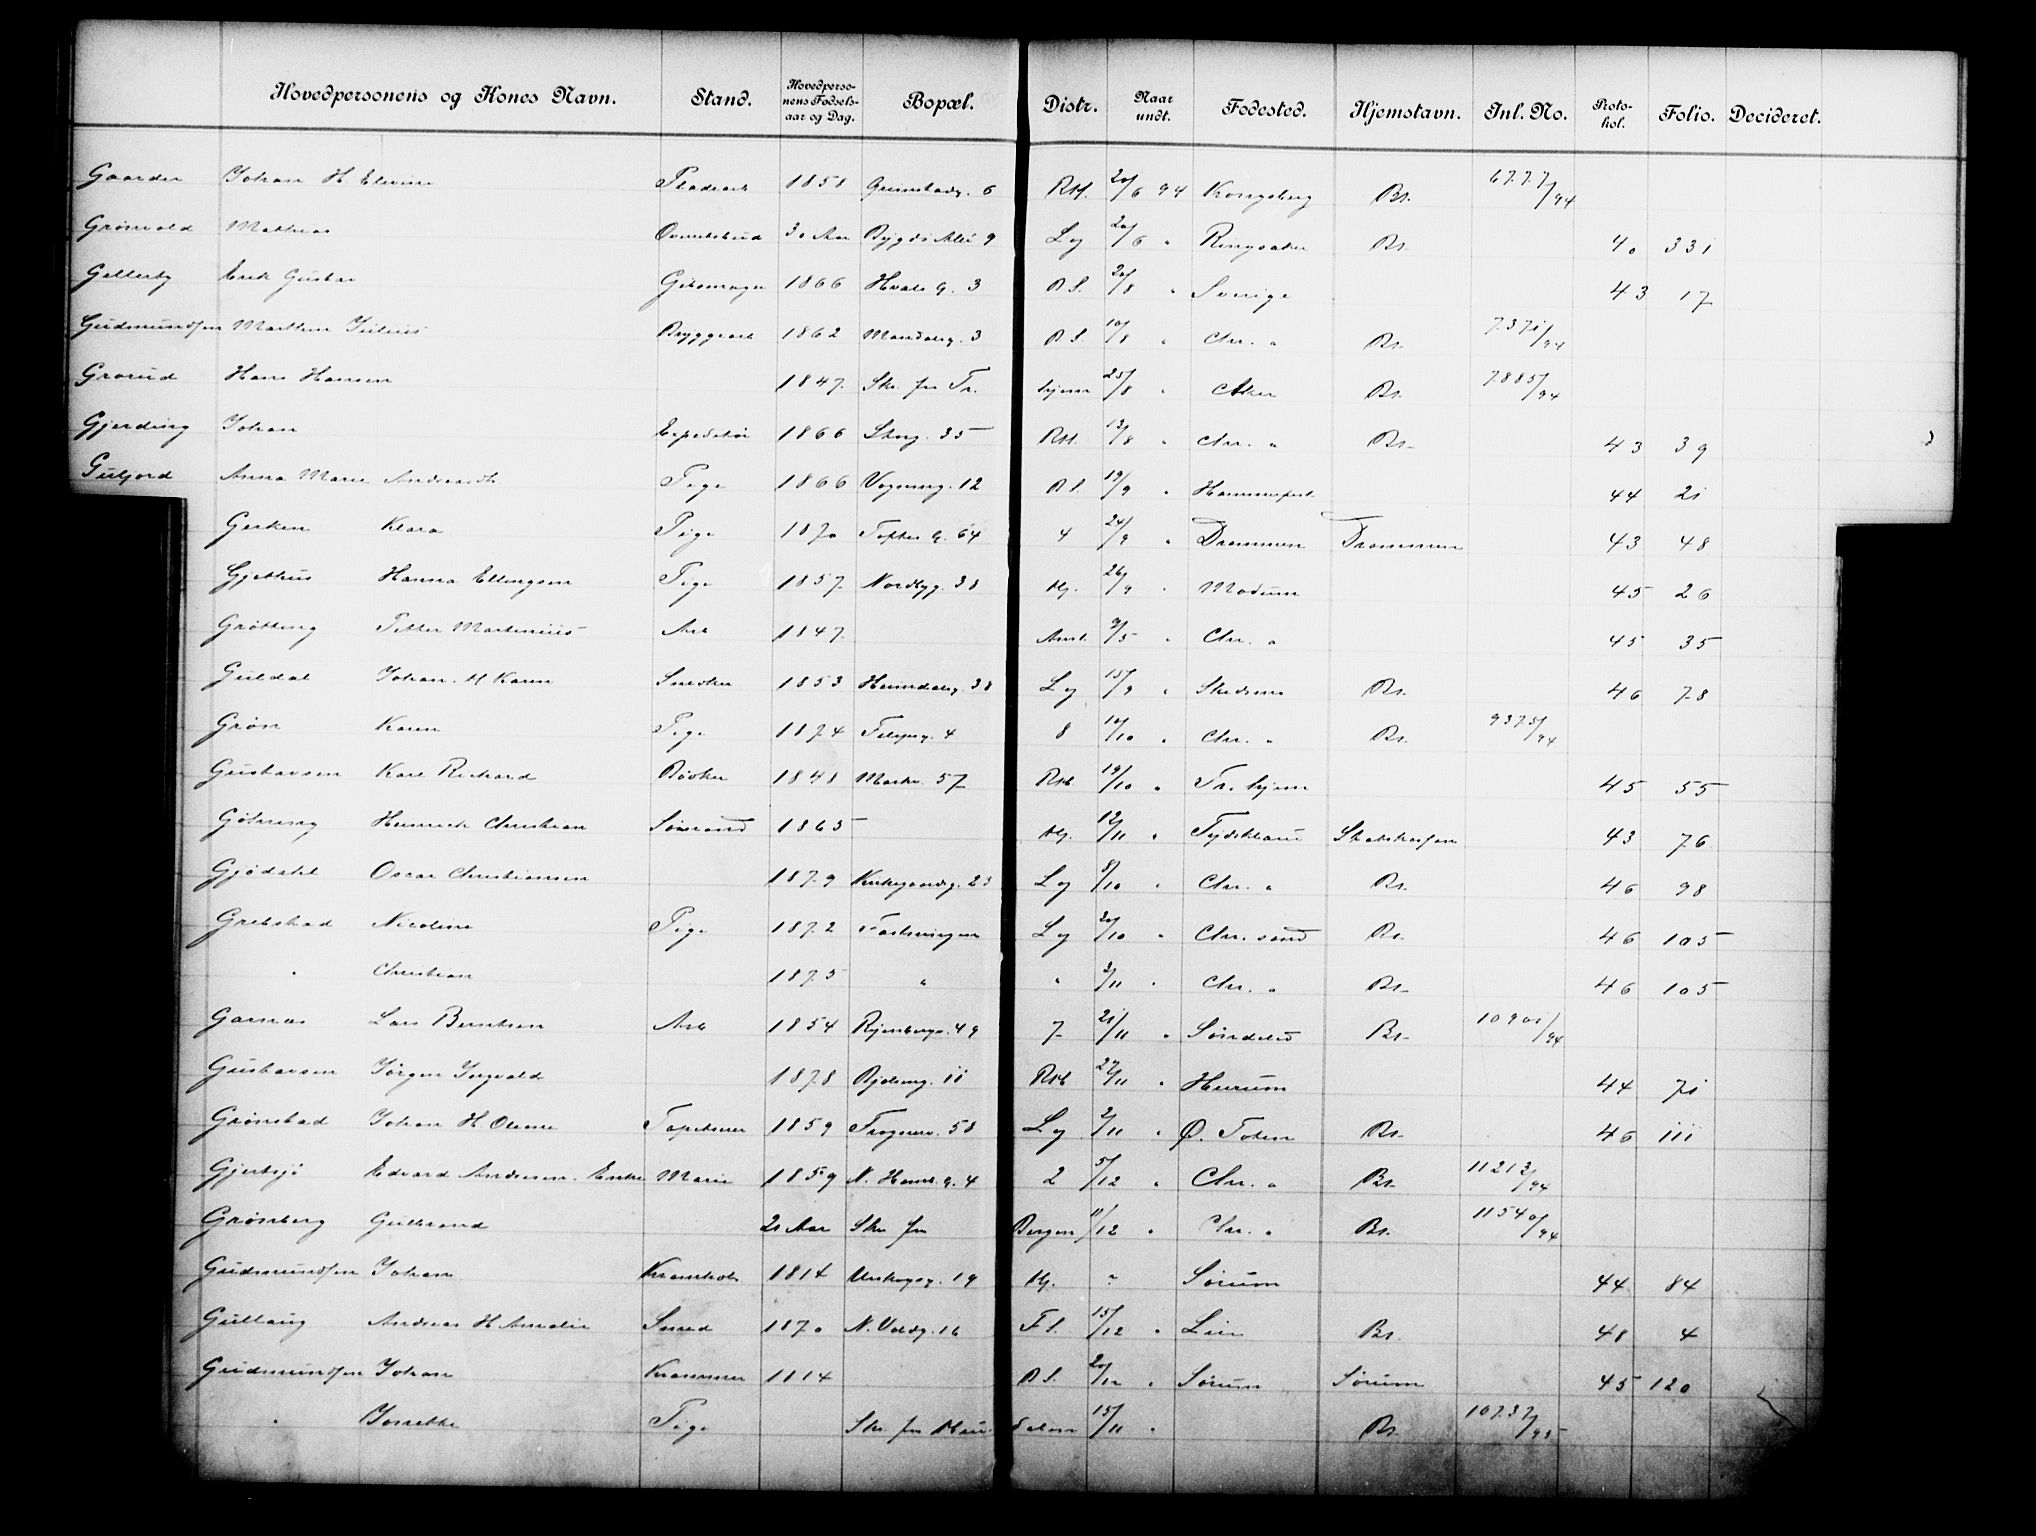 Hovedpersonens og Kones Navn. Stand. Hovedperso-nens Fødsels-aar og Dag. Bopæl. Distr. Naar undt. Fødested. Hjemstavn. Inl. No. Proto-kol. Folio. Decideret.
Gaarder Johan H Elevine 1858 6 RH. 20/6 94 Kongsberg Br. 6777/94
Grønvold Mathias 30 Aar Bygdø Alle 9 Lg 20/6 " Ringsaker Br. 40 331
Gellerby Erik Gustav 1866 Hvals g. 3 R.S. 20/8 " Sverige 43 17
Gudmundsen Marthin Julius Bryggearb 1862 Mandalsg. 3 R.S. 10/8 " Chr. " Br. 7371/94
Grorud Hans Hansen 1847 Skr. fra Tr. hjem 25/8 " Aker Br. 7885/94
Gjerding Johan Expeditør 1866 Storg. 35 RH. 13/8 " Chr. " Br. 43 39
Guljord Anna Marie Pige 1866 Vognmg. 12 R.S. 19/9 " Hammerfest 44 21
Gerken Klara Pige 1870 Toftes g. 64 4 24/9 " Drammen Drammen 43 48
Gjethus Hanna Ellingsen Pige 1857 Nordbyg. 38 Hj. 26/9 " Modum 45 26
Grøtting Petter Martinius Arb 1847 /5 " Chr. " 45 35
Guldal Johan. H Karen Snedker 1853 Heimdalsg. 38 Lg 15/9 " Skedsmo Br. 46 78
Grøn Karen Pige 1874 4 8 10/10 " Chr. " Br. 9375/94
Gustavsen Karl Richard Bødker 1848 Markv. 57 RH 19/10 " Tr. hjem 45 55
Gøhring Heinrich Christian Sømand 1865 Hj. 12/11 " Tydskland 43 76
Gjødahl Oscar Christiansen 1879 Kirkegaardsg. 23 Lg 8/10 " Chr. " Br. 46 98
Grebstad Nicoline Pige 1872 Lg 20/10 " Chr. sand Br. 46 105
" Christian 1875 " " 2/11 " Chr. " Br. 46 105
Garnaas Lars Berntsen Arb 1854 49 7 21/11 " Søndeled Br. 10901/94
Gustavsen Jørgen Ingvald 1878 11 RH 27/11 " Hurum 44 71
Grønstad Johan H Oline Tapetserer 1859 Frognerv. 58 Lg 2/11 " Ø. Toten Br. 46 111
Gjertsjø Edvard Andersen. Enke Marie 1859 N. Hamb. g. 4 2 5/12 " Chr. " Br. 11213/94
Grønberg Gulbrand 21 Aar Skr. fra Bergen 11/12 " Chr. " Br. 11540/94
Gudmundsen Johan 1814 19 Hj. " Sørum 44 84
Gullaug Andreas H Amalie Smed 1870 N. Voldg. 16 F.S. 15/12 " Lier Br. 48 4
Gudmundsen Johan Kræmmer 1814 R.S. 20/12 " Sørum Sørum 45 120
" Josefine Pige Skr. fra 15/11 " Br. 10737/95